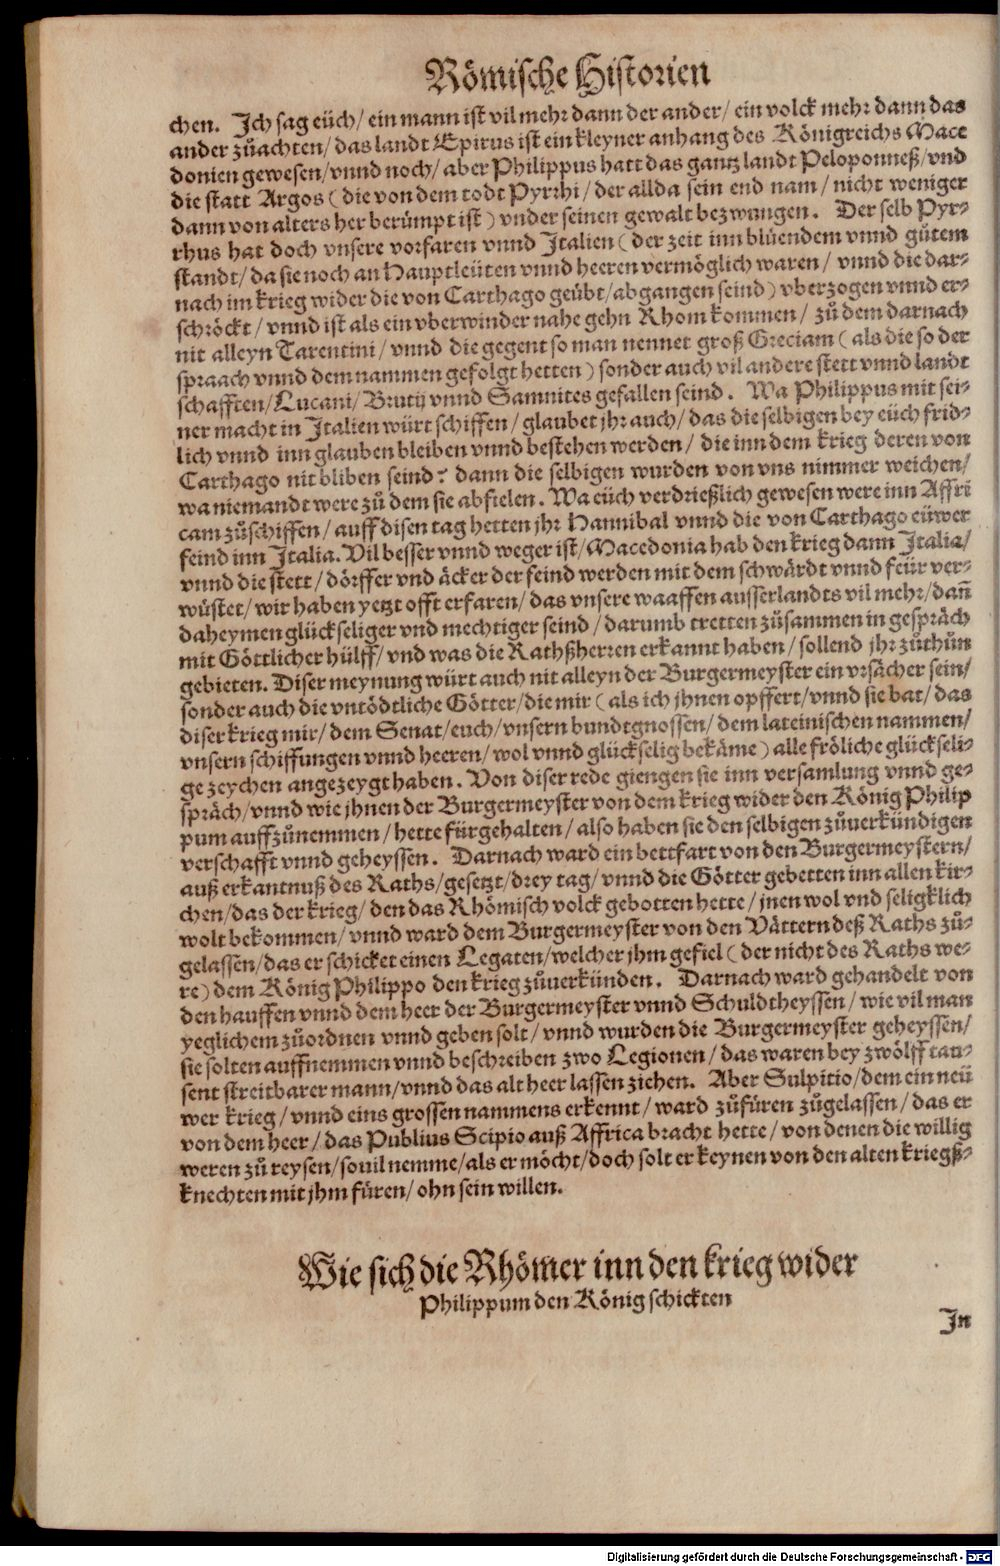 Römische Historien
chen. Ich sag eüch/ ein mann ist vil mehr dann der ander/ ein volck mehr dann das
ander zůachten/ das landt Epirus ist ein kleyner anhang des Königreichs Mace
donien gewesen/ vnnd noch/ aber Philippus hatt das gantz landt Peloponneß/ vnd
die statt Argos (die von dem todt Pyrrhi/ der allda sein end nam/ nicht weniger
dann von alters her berümpt ist) vnder seinen gewalt bezwungen. Der selb Pyr-
rhus hat doch vnsere vorfaren vnnd Italien (der zeit inn blüendem vnnd gůtem
standt/ da sie noch an Hauptleüten vnnd heeren vermöglich waren/ vnnd die dar-
nach im krieg wider die von Carthago geübt/ abgangen seind) vberzogen vnnd er-
schröckt/ vnnd ist als ein vberwinder nahe gehn Rhom kommen/ zů dem darnach
nit alleyn Tarentini/ vnnd die gegent so man nennet groß Greciam (als die so der
spraach vnnd dem nammen gefolgt hetten) sonder auch vil andere stett vnnd landt
schafften/ Lucani/ Brutij vnnd Samnites gefallen seind. Wa Philippus mit sei-
ner macht in Italien würt schiffen/ glaubet jhr auch/ das die selbigen bey eüch frid-
lich vnnd inn glauben bleiben vnnd bestehen werden/ die inn dem krieg deren von
Carthago nit bliben seind? dann die selbigen wurden von vns nimmer weichen/
wa niemandt were zů dem sie abfielen. Wa eüch verdrießlich gewesen were inn Affri
cam zůschiffen/ auff disen tag hetten jhr Hannibal vnnd die von Carthago eüwer
feind inn Italia. Vil besser vnnd weger ist/ Macedonia hab den krieg dann Italia/
vnnd die stett/ dörffer vnd äcker der feind werden mit dem schwärdt vnnd feür ver-
wüstet/ wir haben yetzt offt erfaren/ das vnsere waaffen ausserlandts vil mehr/ dañ
daheymen glückseliger vnd mechtiger seind/ darumb tretten zůsammen in gespräch
mit Göttlicher hülff/ vnd was die Rathßherren erkannt haben/ sollend jhr zůthůn
gebieten. Diser meynung würt auch nit alleyn der Burgermeyster ein vrsächer sein/
sonder auch die vntödtliche Götter/ die mir (als ich jhnen opffert/ vnnd sie bat/ das
diser krieg mir/ dem Senat/ euch/ vnsern bundtgnossen/ dem lateinischen nammen/
vnsern schiffungen vnnd heeren/ wol vnnd glückselig bekäme) alle fröliche glückseli-
ge zeychen angezeygt haben. Von diser rede giengen sie inn versamlung vnnd ge-
spräch/ vnnd wie jhnen der Burgermeyster von dem krieg wider den König Philip
pum auffzůnemmen/ hette fürgehalten/ also haben sie den selbigen zůuerkündigen
verschafft vnnd geheyssen. Darnach ward ein bettfart von den Burgermeystern/
auß erkantnuß des Raths/ gesetzt/ drey tag/ vnnd die Götter gebetten inn allen kir-
chen/ das der krieg/ den das Rhömisch volck gebotten hette/ jnen wol vnd seligklich
wolt bekommen/ vnnd ward dem Burgermeyster von den Vättern deß Raths zů-
gelassen/ das er schicket einen Legaten/ welcher jhm gefiel (der nicht des Raths we-
re) dem König Philippo den krieg zůuerkünden. Darnach ward gehandelt von
den hauffen vnnd dem heer der Burgermeyster vnnd Schuldtheyssen/ wie vil man
yeglichem zůordnen vnnd geben solt/ vnnd wurden die Burgermeyster geheyssen/
sie solten auffnemmen vnnd beschreiben zwo Legionen/ das waren bey zwölff tau-
sent streitbarer mann/ vnnd das alt heer lassen ziehen. Aber Sulpitio/ dem ein neü
wer krieg/ vnnd eins grossen nammens erkennt/ ward zůfüren zůgelassen/ das er
von dem heer/ das Publius Scipio auß Affrica bracht hette/ von denen die willig
weren zů reysen/ souil nemme/ als er möcht/ doch solt er keynen von den alten kriegß-
knechten mit jhm füren/ ohn sein willen.
Wie sich die Rhömer inn den krieg wider
Philippum den König schickten
In
Digitalisierung gefördert durch die Deutsche Forschungsgemeinschaft - DFG